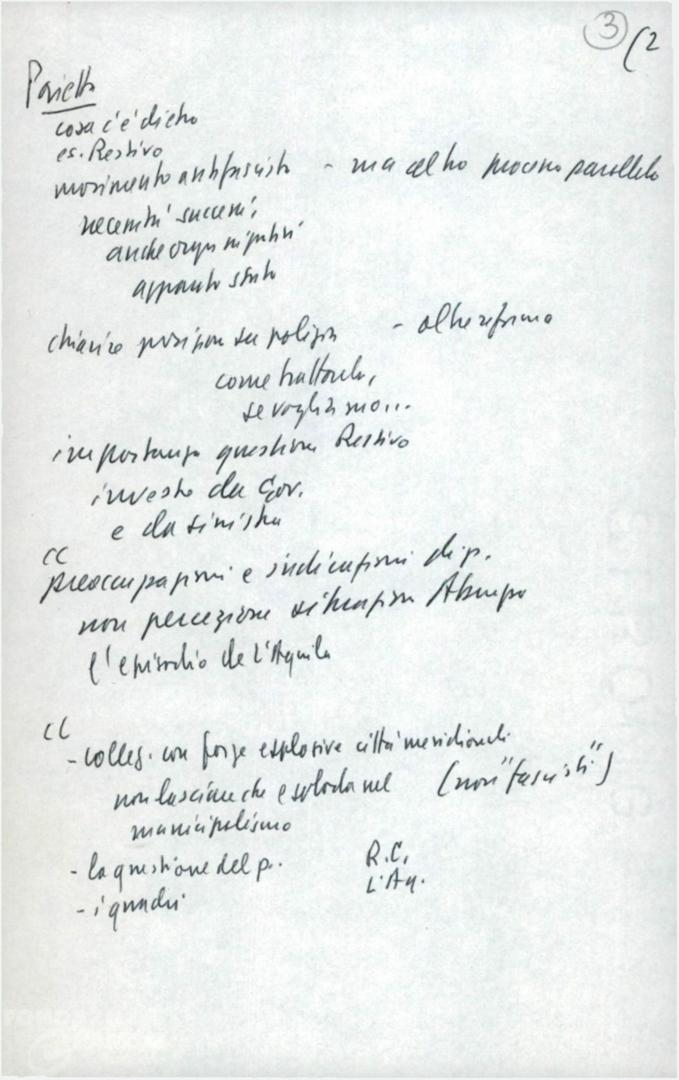 3 (2
Pajetta
cosa c'è dietro
es. Restivo
movimento antifascista - ma altro processo parallelo
necessità successi,
anche organi
apparato stato
chiarire posizione su polizia - oltre riforma
come trattarla,
se vogliamo...
importanza questione Restivo
investe da Gov.
e da sinistra
CC
preoccupazioni e indicazioni di p.
non percezione situazione Abruzzo
l'episodio de L'Aquila
CC
- colleg. con forze esplosive città meridionali
non lasciare che esploda nel (non "fascisti")
municipalismo
- la questione del p. R.C.
L'Aq.
- i quadri